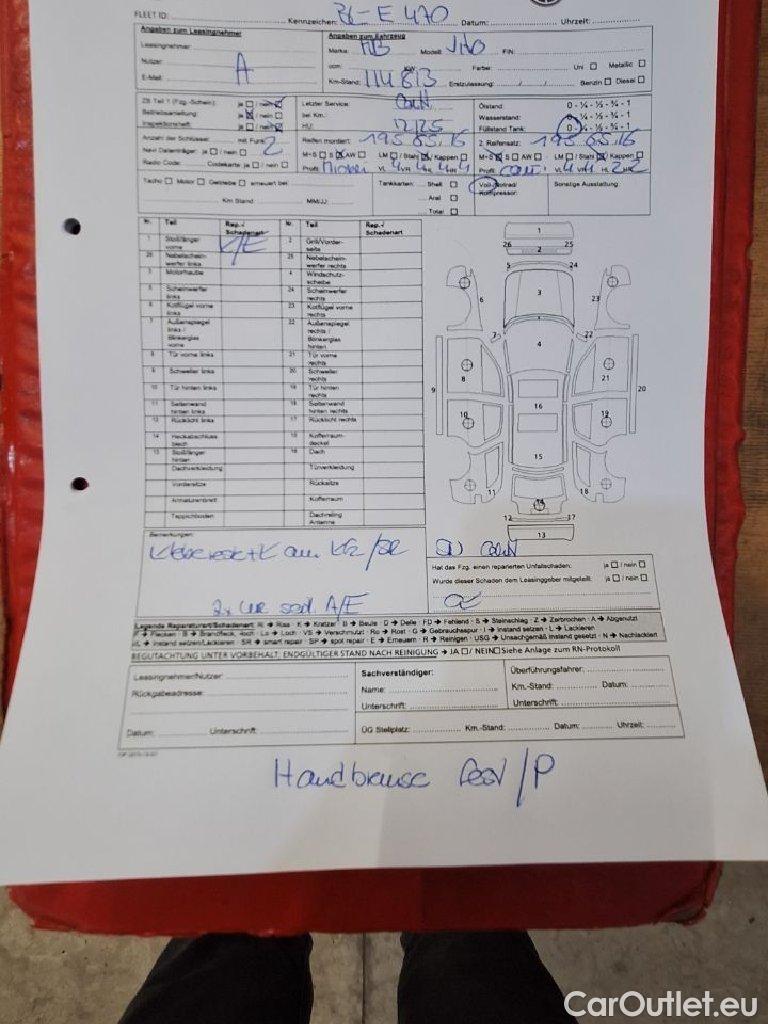 FLEET ID:
Kennzeichen: E 470 Datum: Uhrzeit:
Angaben zum Leasingnehmer
Leasingnehmer:
Nutzer:
E-Mail:
A
Angaben zum Fahrzeug
Marke: MB Modell: Vito FIN:
ccm: KW Farbe: Uni □ Metallic □
Km-Stand: 114813 Erstzulassung: Benzin □ Diesel □
ZB Teil 1 (Fzg.-Schein): ja □ / nein
Betriebsanleitung: ja / nein □
Inspektionsheft: ja □ / nein
Letzter Service:
bei Km:
HU: 12/25
Ölstand: 0 - ¼ - ½ - ¾ - 1
Wasserstand: 0 - ¼ - ½ - ¾ - 1
Füllstand Tank: 0 - ¼ - ½ - ¾ - 1
Anzahl der Schlüssel: mit Funk: 2
Navi Datenträger: ja □ / nein □
Radio Code: Codekarte ja □ / nein □
Reifen montiert: 195.65.16
M+S □ S AW □ LM □ / Stahl / Kappen □
Profil: VL 4 VR 4 HL 4 HR 4
2. Reifensatz: 195.65.16
M+S S □ AW □ LM □ / Stahl / Kappen □
Profil: VL 4 VR 4 HL 2 HR 2
Tacho □ Motor □ Getriebe □ erneuert bei
Km Stand MM/JJ:
Tankkarten: Shell □
Aral □
Total □
Voll-/Notrad/
Kompressor:
Sonstige Ausstattung:
Nr. Teil Rep./ Schadenart Nr. Teil Rep./ Schadenart
1 Stoßfänger vorne K/E 2 Grill/Vorderseite
26 Nebelscheinwerfer links 25 Nebelscheinwerfer rechts
3 Motorhaube 4 Windschutzscheibe
5 Scheinwerfer links 24 Scheinwerfer rechts
6 Kotflügel vorne links 23 Kotflügel vorne rechts
7 Außenspiegel links / Blinkerglas vorne 22 Außenspiegel rechts / Blinkerglas hinten
8 Tür vorne links 21 Tür vorne rechts
9 Schweller links 20 Schweller rechts
10 Tür hinten links 19 Tür hinten rechts
11 Seitenwand hinten links 18 Seitenwand hinten rechts
12 Rücklicht links 17 Rücklicht rechts
14 Heckabschlussblech 15 Kofferraumdeckel
13 Stoßfänger hinten 16 Dach
Dachverkleidung Türverkleidung
Vordersitze Rücksitze
Armaturenbrett Kofferraum
Teppichboden Dachreling Antenne
1
26 2 25
5 24
3
6 23
7 22
4
8 21
9 20
16
10 19
15
11 18
14
12 17
13
Bemerkungen:
Hat das Fzg. einen reparierten Unfallschaden: ja □ / nein □
Wurde dieser Schaden dem Leasinggeber mitgeteilt: ja □ / nein □
Legende Reparaturart/Schadenart R → Riss · K → Kratzer · B → Beule · D → Delle · FD → Fehlend · S → Steinschlag · Z → Zerbrochen · A → Abgenutzt
F → Flecken · B → Brandfleck, -loch · Lo → Loch · VS → Verschmutzt · Ro → Rost · G → Gebrauchsspur · I → Instand setzen · L → Lackieren
I/L → Instand setzen/Lackieren · SR → smart repair · SP → spot repair · E → Erneuern · R → Reinigen · USG → Unsachgemäß instand gesetzt · N → Nachlackiert
BEGUTACHTUNG UNTER VORBEHALT; ENDGÜLTIGER STAND NACH REINIGUNG → JA □ / NEIN □ Siehe Anlage zum RN-Protokoll
Leasingnehmer/Nutzer:
Rückgabeadresse:
Datum: Unterschrift:
Sachverständiger:
Name:
Unterschrift:
Überführungsfahrer:
Km.-Stand: Datum:
Unterschrift:
ÜG Stellplatz: Km.-Stand: Datum: Uhrzeit:
Handbremse fest / P
CarOutlet.eu